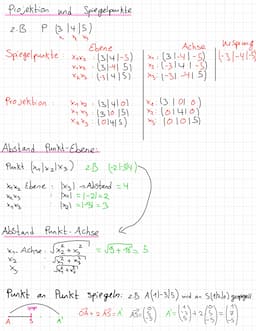 Projektion und Spiegelpunkte
z.B P (3|4|5)
x₁ x₂ x₃
Ebene Achse Ursprung
Spiegelpunkte: x₁x₂ : (3|4|-5) x₁ : (3|-4|-5) (-3|-4|-5)
x₁x₃ : (3|-4|5) x₂ : (-3|4|-5)
x₂x₃ : (-3|4|5) x₃ : (-3|-4|5)
Projektion: x₁x₂ : (3|4|0) x₁ : (3|0|0)
x₁x₃ : (3|0|5) x₂ : (0|4|0)
x₂x₃ : (0|4|5) x₃ : (0|0|5)
Abstand Punkt-Ebene:
Punkt (x₁|x₂|x₃) z.B.
x₁x₂ Ebene: |x₃| → Abstand = 4
x₂x₃ : |x₁| = |-2| = 2
x₁x₃ : |x₂| = |-3| = 3
Abstand Punkt-Achse
x₁-Achse: √x₂² + x₃² = 5
x₂
x₃
Punkt an Punkt spiegeln: z.B wird an gespiegelt
A S A'